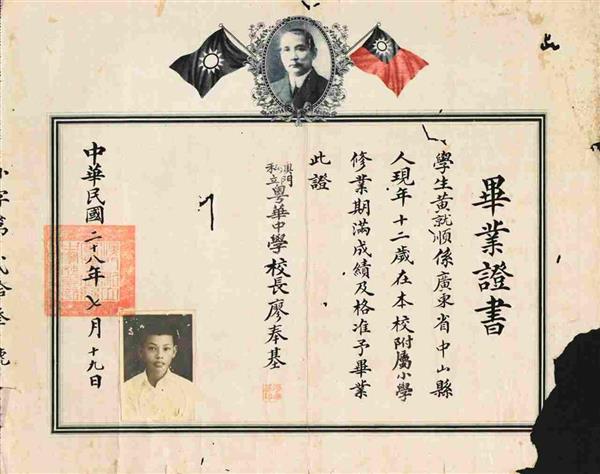 畢業證書
學生黃就順係廣東省中山縣
人現年十二歲在本校附屬小學
修業期滿成績及格准予畢業
此證
澳門
私立
粵華中學校長廖奉基
中華民國二十八年七月十九日
小字第貳拾叁號